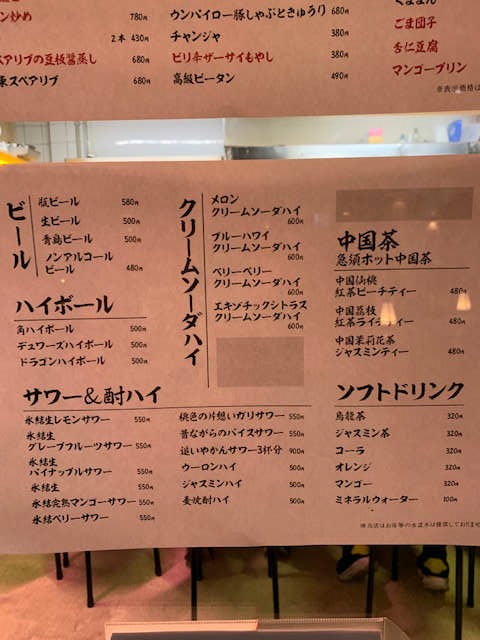 ン炒め 780円
2本 430円
スペアリブの豆板醤蒸し 680円
東スペアリブ 680円
ウンパイロー豚しゃぶときゅうり 680円
チャンジャ 380円
ピリ辛ザーサイもやし 380円
高級ピータン 490円
ごま団子
杏仁豆腐
マンゴープリン
※表示価格は
ビール
瓶ビール 580円
生ビール 500円
青島ビール 500円
ノンアルコール
ビール 480円
ハイボール
角ハイボール 500円
デュワーズハイボール 500円
ドラゴンハイボール 500円
クリームソーダハイ
メロン
クリームソーダハイ
600円
ブルーハワイ
クリームソーダハイ
600円
ベリーベリー
クリームソーダハイ
600円
エキゾチックシトラス
クリームソーダハイ
600円
中国茶
急須ポット中国茶
中国仙桃
紅茶ピーチティー 480円
中国茘枝
紅茶ライチティー 480円
中国茉莉花茶
ジャスミンティー 480円
サワー&酎ハイ
氷結生レモンサワー 550円
氷結生
グレープフルーツサワー 550円
氷結生
パイナップルサワー 550円
氷結生 550円
氷結完熟マンゴーサワー 550円
氷結ベリーサワー 550円
桃色の片想いガリサワー 550円
昔ながらのバイスサワー 550円
追いやかんサワー3杯分 900円
ウーロンハイ 500円
ジャスミンハイ 500円
麦焼酎ハイ 500円
ソフトドリンク
烏龍茶 320円
ジャスミン茶 320円
コーラ 320円
オレンジ 320円
マンゴー 320円
ミネラルウォーター 100円
※当店はお冷等の水道水は提供しておりませ